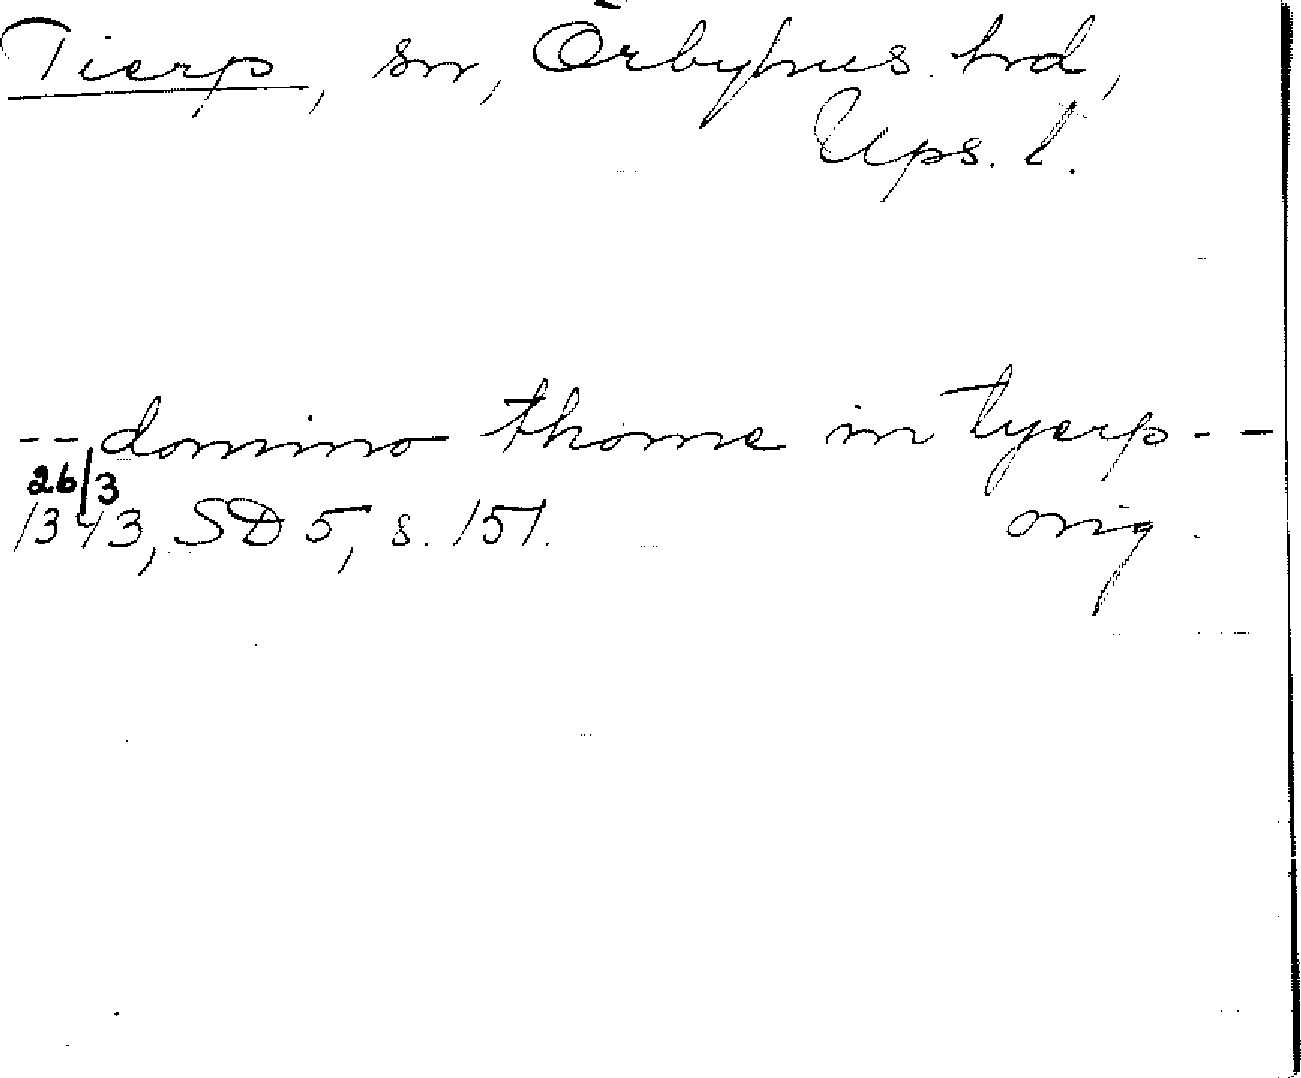 Tierp, sn, Örbyhus hd,
Ups. l.
-- domino thome in tyerp --
26/3
1343, SD 5, s. 151. orig.